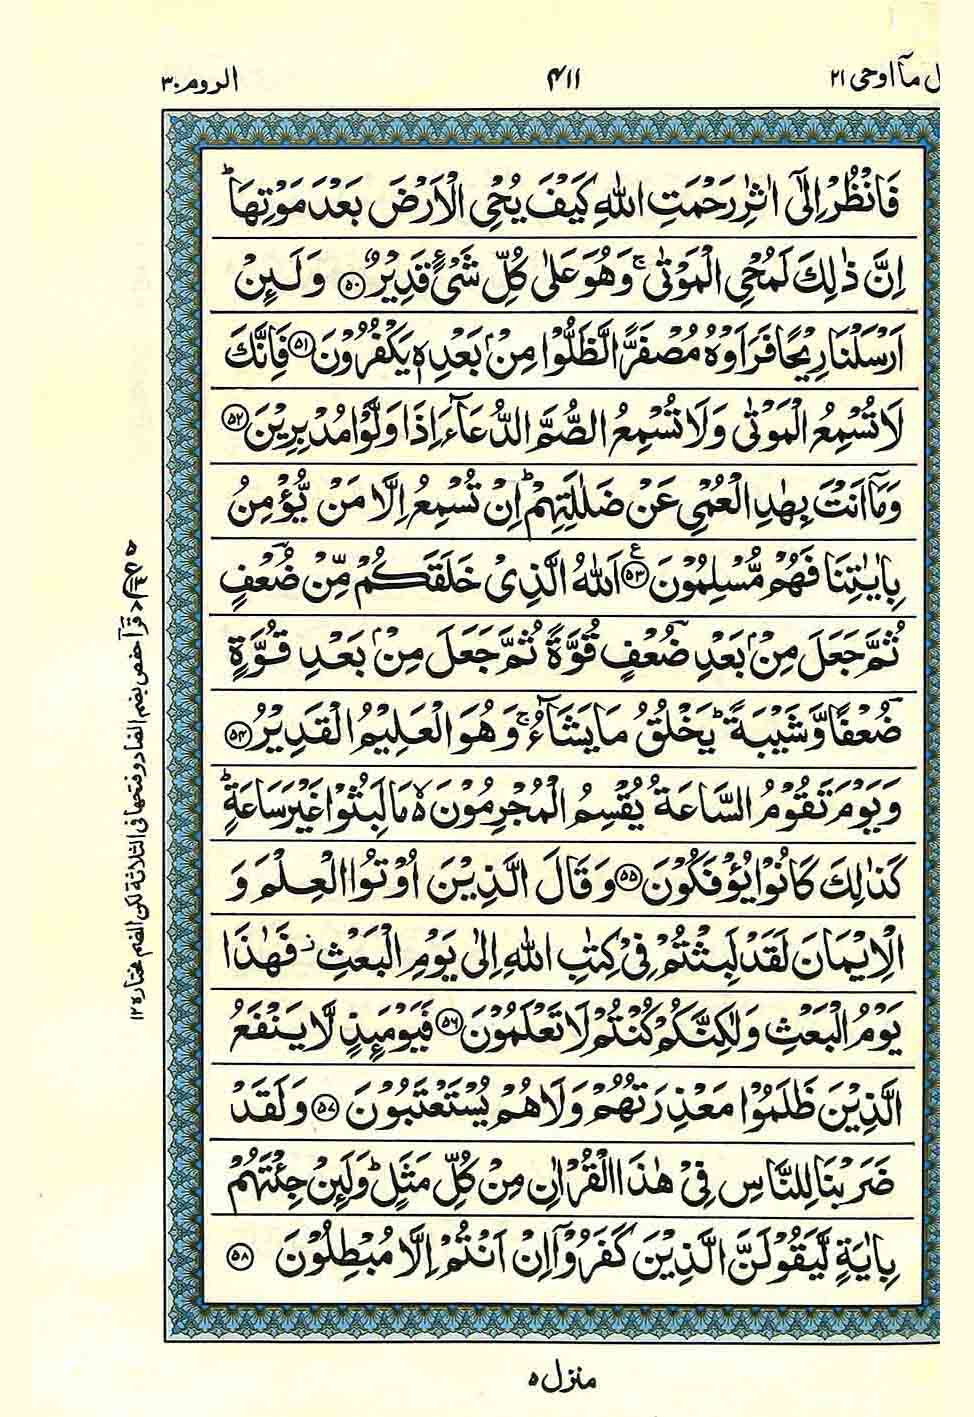 ل مآ اوحی ۲۱
۴۱۱
الروم ۳۰
فَانْظُرْ اِلٰۤى اٰثٰرِ رَحْمَتِ اللّٰهِ كَیْفَ یُحْیِ الْاَرْضَ بَعْدَ مَوْتِهَاؕ
اِنَّ ذٰلِكَ لَمُحْیِ الْمَوْتٰىۚ وَهُوَ عَلٰى كُلِّ شَیْءٍ قَدِیْرٌ ۝۵۰ وَ لَىِٕنْ
اَرْسَلْنَا رِیْحًا فَرَاَوْهُ مُصْفَرًّا لَّظَلُّوْا مِنْۢ بَعْدِهٖ یَكْفُرُوْنَ ۝۵۱ فَاِنَّكَ
لَا تُسْمِعُ الْمَوْتٰى وَلَا تُسْمِعُ الصُّمَّ الدُّعَآءَ اِذَا وَلَّوْا مُدْبِرِیْنَ ۝۵۲
وَمَاۤ اَنْتَ بِهٰدِ الْعُمْیِ عَنْ ضَلٰلَتِهِمْؕ اِنْ تُسْمِعُ اِلَّا مَنْ یُّؤْمِنُ
بِاٰیٰتِنَا فَهُمْ مُّسْلِمُوْنَ ۝۵۳ ع اَللّٰهُ الَّذِیْ خَلَقَكُمْ مِّنْ ضُؔعْفٍ
ثُمَّ جَعَلَ مِنْۢ بَعْدِ ضُؔعْفٍ قُوَّةً ثُمَّ جَعَلَ مِنْۢ بَعْدِ قُوَّةٍ
ضُؔعْفًا وَّشَیْبَةًؕ یَخْلُقُ مَا یَشَآءُۚ وَهُوَ الْعَلِیْمُ الْقَدِیْرُ ۝۵۴
وَیَوْمَ تَقُوْمُ السَّاعَةُ یُقْسِمُ الْمُجْرِمُوْنَ ۙ۬ مَا لَبِثُوْا غَیْرَ سَاعَةٍؕ
كَذٰلِكَ كَانُوْا یُؤْفَكُوْنَ ۝۵۵ وَقَالَ الَّذِیْنَ اُوْتُوا الْعِلْمَ وَ
الْاِیْمَانَ لَقَدْ لَبِثْتُمْ فِیْ كِتٰبِ اللّٰهِ اِلٰى یَوْمِ الْبَعْثِؗ فَهٰذَا
یَوْمُ الْبَعْثِ وَلٰكِنَّكُمْ كُنْتُمْ لَا تَعْلَمُوْنَ ۝۵۶ فَیَوْمَىِٕذٍ لَّا یَنْفَعُ
الَّذِیْنَ ظَلَمُوْا مَعْذِرَتُهُمْ وَلَا هُمْ یُسْتَعْتَبُوْنَ ۝۵۷ وَلَقَدْ
ضَرَبْنَا لِلنَّاسِ فِیْ هٰذَا الْقُرْاٰنِ مِنْ كُلِّ مَثَلٍؕ وَلَىِٕنْ جِئْتَهُمْ
بِاٰیَةٍ لَّیَقُوْلَنَّ الَّذِیْنَ كَفَرُوْۤا اِنْ اَنْتُمْ اِلَّا مُبْطِلُوْنَ ۝۵۸
قرأ حفص بضم الضاد وفتحها فی الثلاثة لكن الضم مختاره ۱۲
منزل ۵